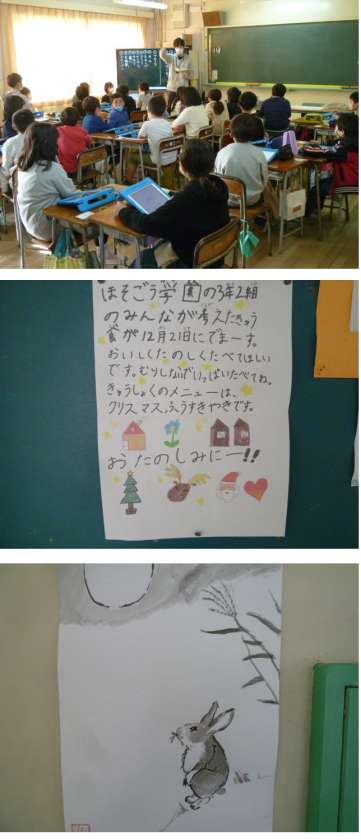 ほそごう学園の3年2組
のみんなが考えたきゅう
食が12月21日にでまーす。
おいしくたのしくたべてほしい
です。むりしないでいっぱいたべてね。
きゅうしょくのメニューは、
クリスマスふうすきやきです。
おたのしみにー!!